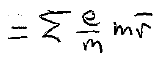 = Σ e/m m r̅